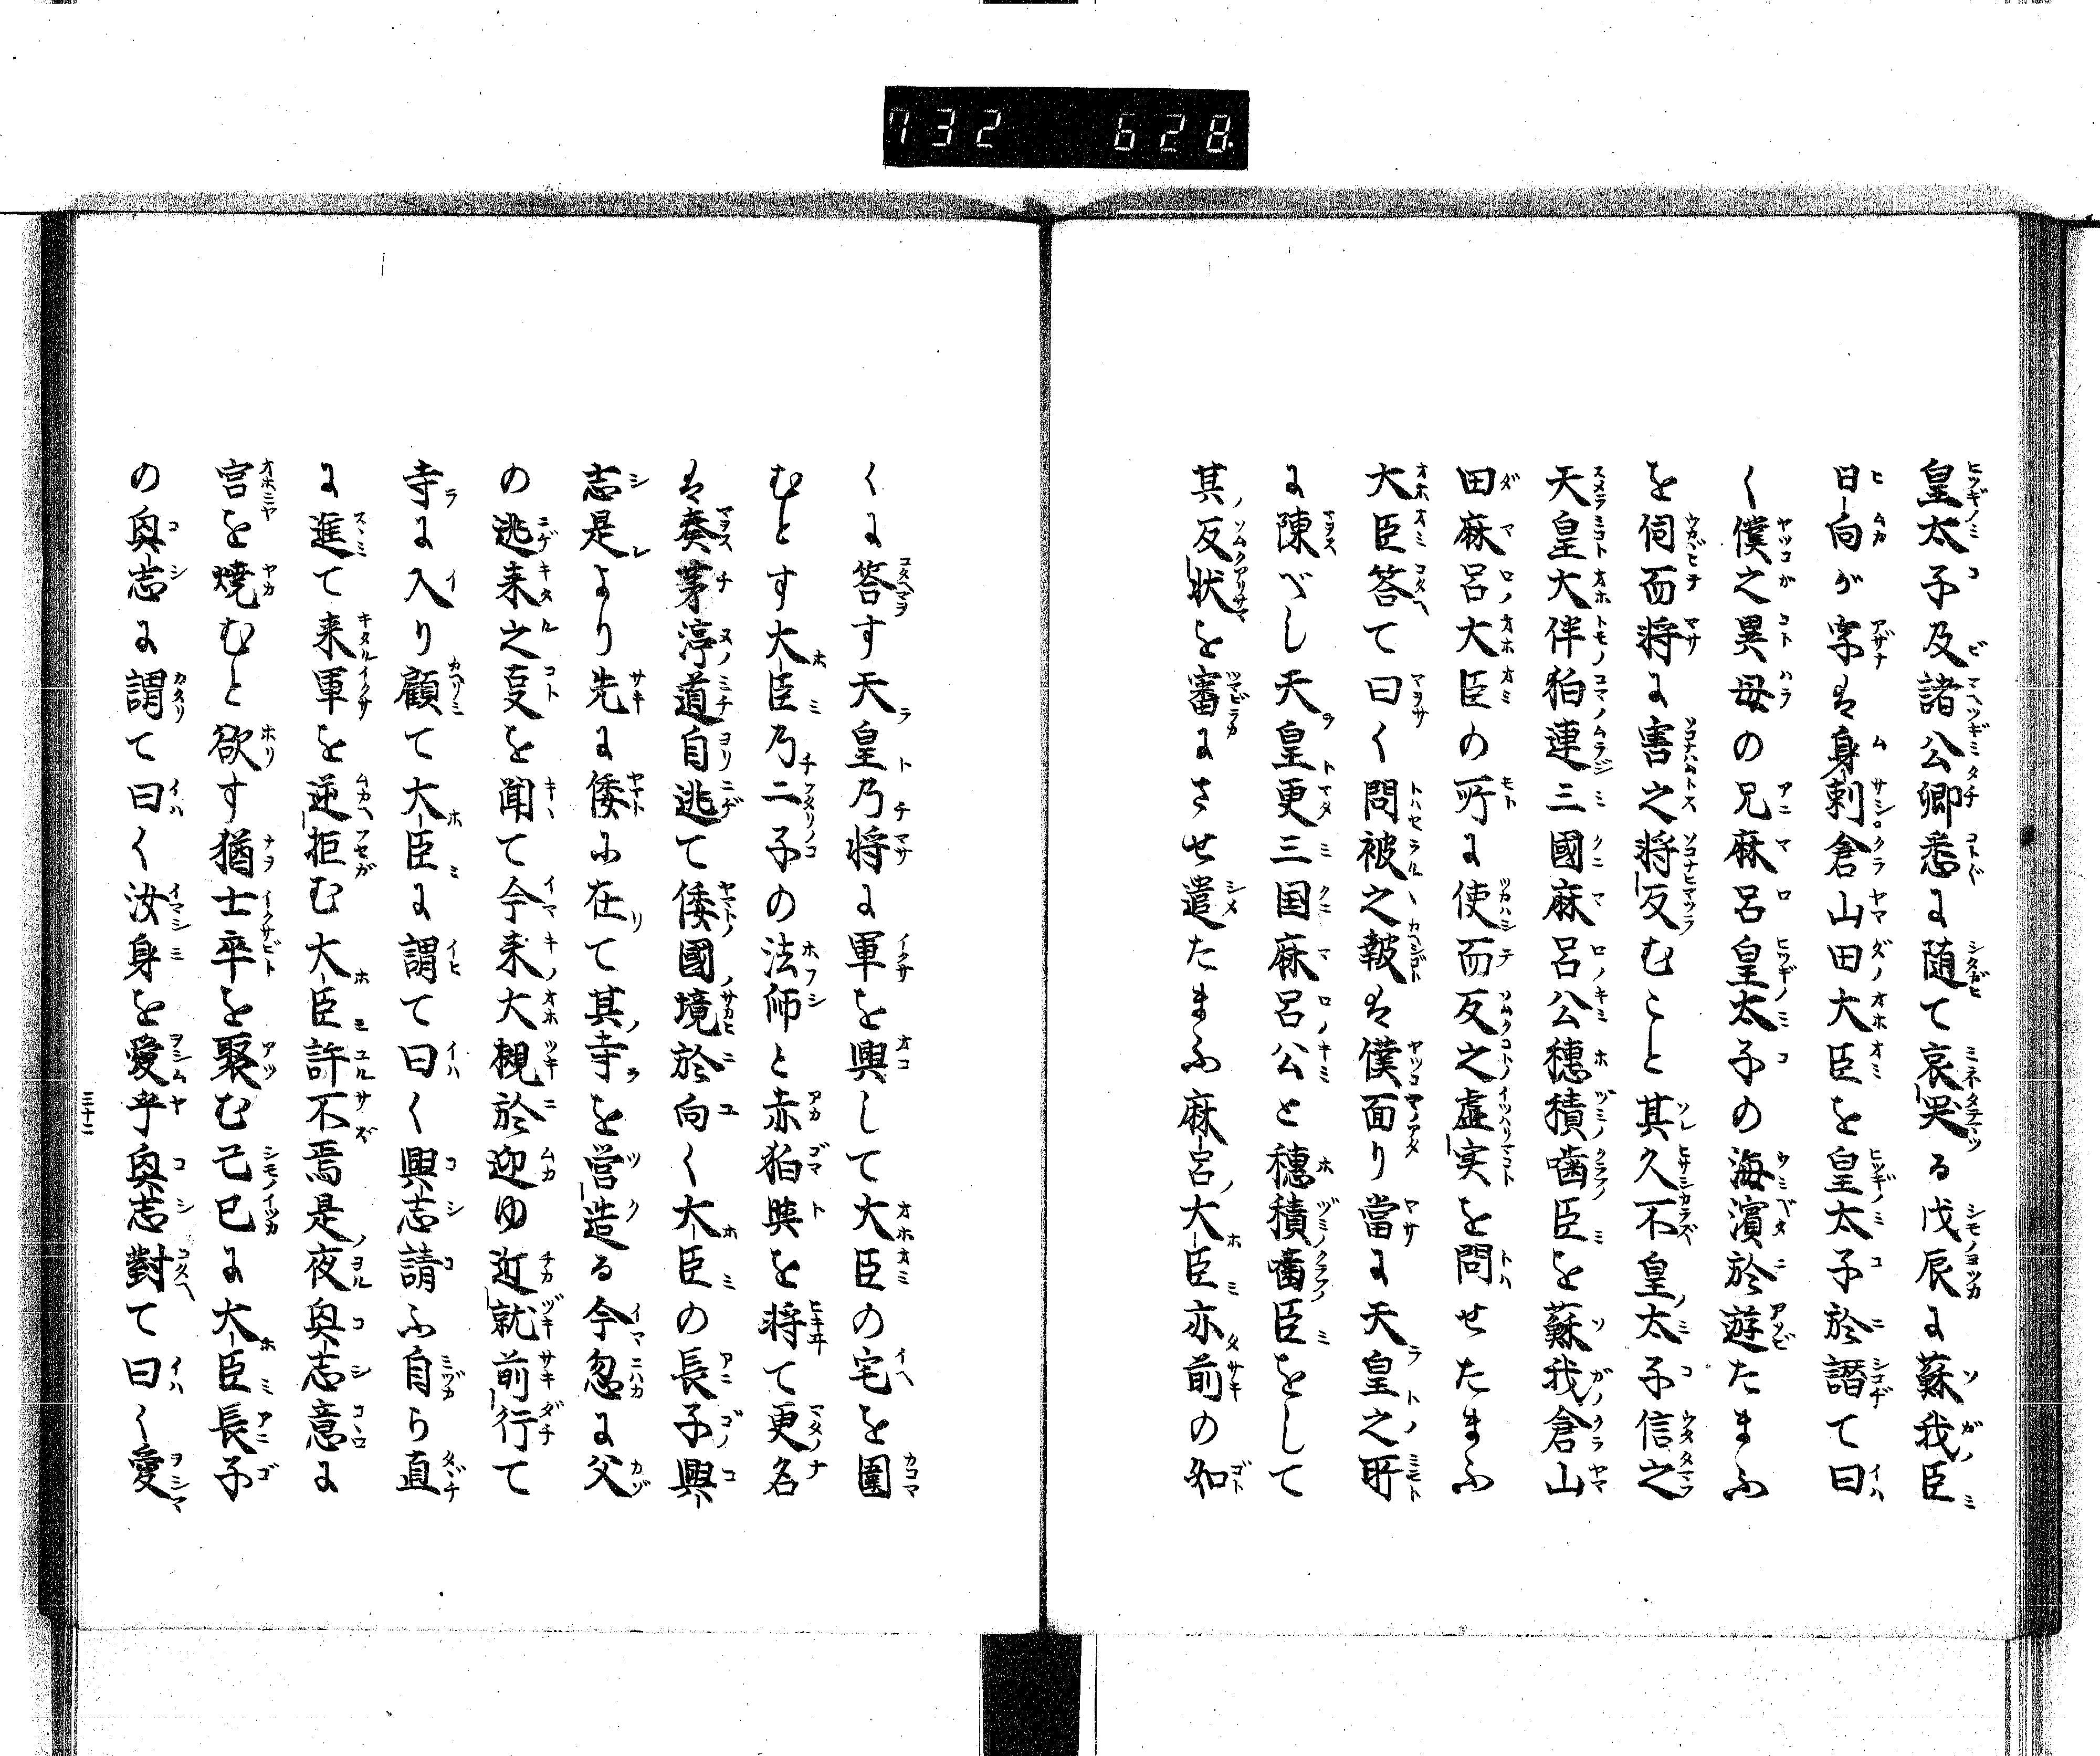 732 628
皇太子及諸公卿悉に随て哀哭る戊辰に蘇我臣
日向が字は身刺倉山田大臣を皇太子於譖て曰
く僕之異母の兄麻呂皇太子の海濱於遊たまふ
を伺而将に害之将反むこと其久不皇太子信之
天皇大伴狛連三國麻呂公穗積嚙臣を蘇我倉山
田麻呂大臣の所に使而反之虚実を問せたまふ
大臣答て曰く問被之報は僕面り當に天皇之所
に陳べし天皇更三国麻呂公と穗積嚙臣をして
其反状を審にさせ遣たまふ麻呂大臣亦前の如
くに答す天皇乃将に軍を興して大臣の宅を圍
むとす大臣乃二子の法師と赤狛與を将て更名
は秦茅渟道自逃て倭國境於向く大臣の長子興
志是より先に倭ふ在て其寺を営造る今忽に父
の逃来之叓を聞て今来大槻於迎ゆ近就前行て
寺に入り顧て大臣に謂て曰く興志請ふ自ら直
に進て来軍を逆拒む大臣許不焉是夜興志意に
宮を焼むと欲す猶士卒を聚む己巳に大臣長子
の興志に謂て曰く汝身を愛乎興志對て曰く愛
三十二